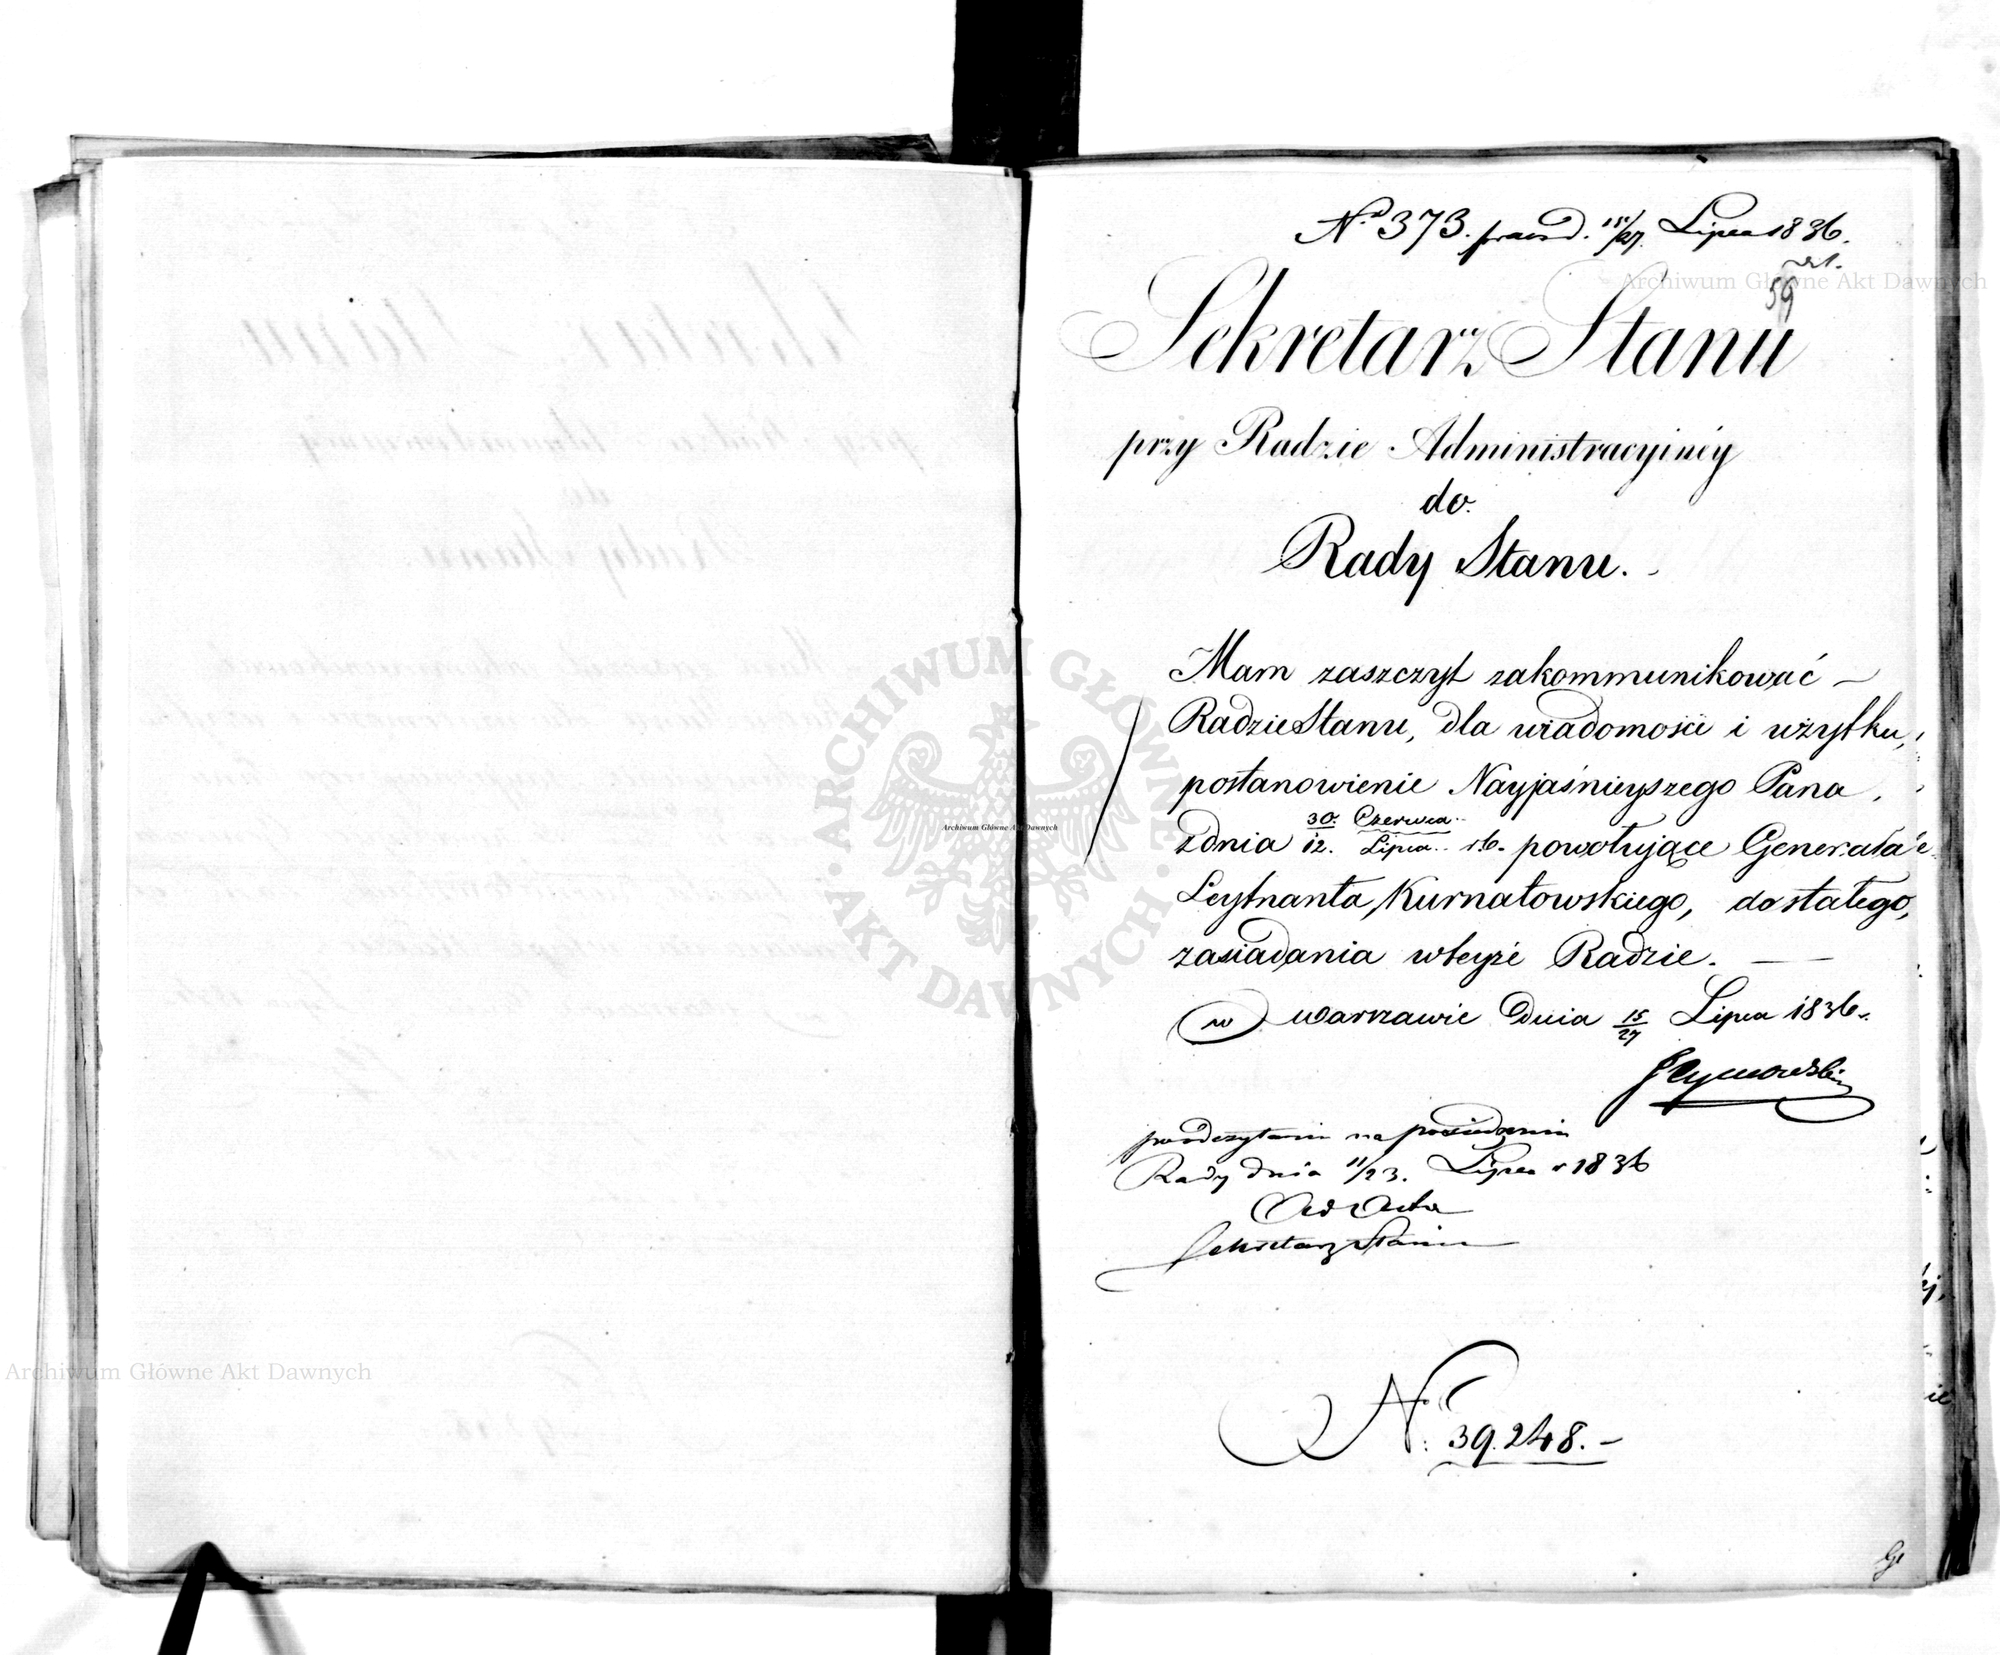 No 373. praes d. 15/27. Lipca 1836.
59
Sekretarz Stanu
przy Radzie Administracyinéy
do
Rady Stanu. -
Mam zaszczyt zakommunikować -
Radzie Stanu, dla wiadomości i użytku,
postanowienie Nayjaśnieyszego Pana
z dnia 30. Czerwca / 12. Lipca r. b. powołujące Generała
Leytnanta Kurnatowskiego, do stałego,
zasiadania w teyże Radzie. —
w Warszawie Dnia 15/27 Lipca 1836.
Tymowski
po odczytaniu na posiedzeniu
Rady dnia 11/23. Lipca r 1836
Ad Acta
Sekretarz Stanu
N: 39.248. -
Archiwum Główne Akt Dawnych
Archiwum Główne Akt Dawnych
Archiwum Główne Akt Dawnych
ARCHIWUM GŁÓWNE AKT DAWNYCH